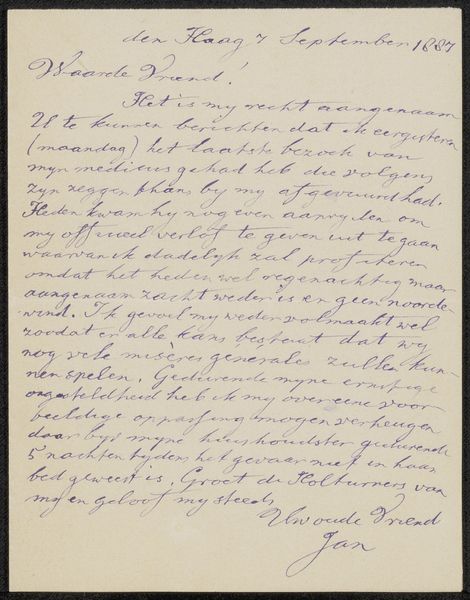 den Haag 7 September 1887
Waarde Vriend!
Het is my recht aangenaam
U te kunnen berichten dat ik eergisteren
(maandag) het laatste bezoek van
myn medicus gehad heb die volgens
zyn zeggen thans by my afgevuurd had.
Heden kwam hy nog even aanryden om
my officieel verlof te geven uit te gaan
waarvan ik dadelyk zal profiteren
omdat het heden wel regenachtig maar
aangenaam zacht weder is en geen noorde-
wind. Ik gevoel my weder volmaakt wel
zoodat er alle kans bestaat dat wy
nog vele misères generales zullen kun-
nen spelen. Gedurende myne ernstige
ongesteldheid heb ik my over eene voor
beeldige oppassing mogen verheugen
daar byv myne huishoudster gedurende
5 nachten tydens het gevaar niet in haar
bed geweest is. Groet de Holturners van
my en geloof my steeds
Uw oude Vriend
Jan